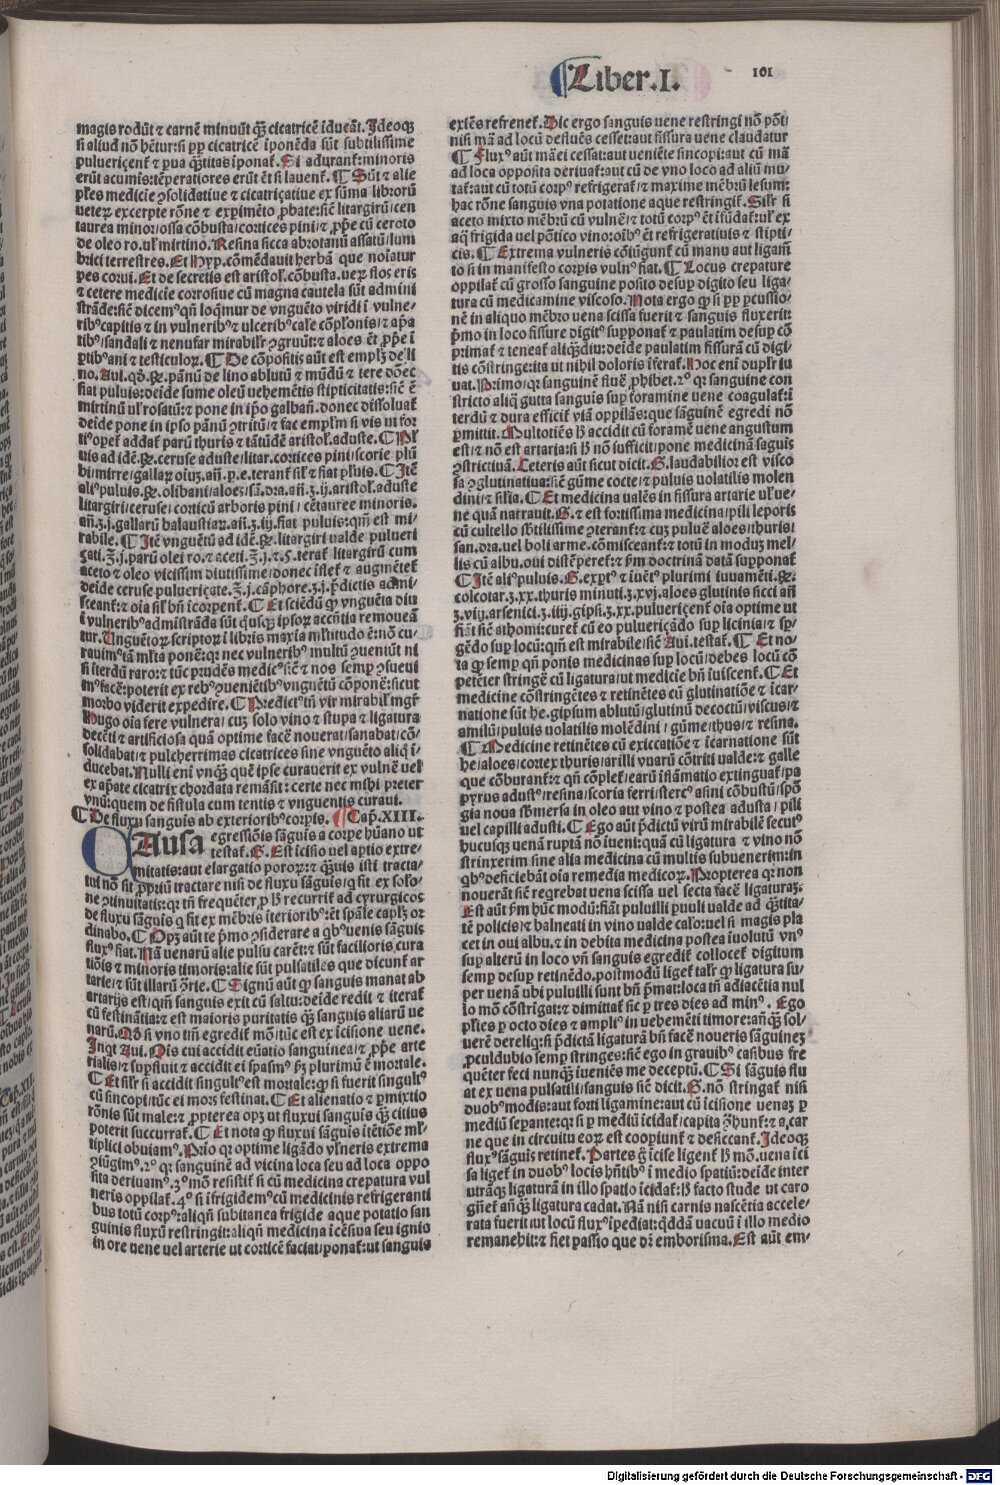 Liber .I.
101
magis rodūt ⁊ carnē minuūt q̄ȝ cicatricē īducāt. Ideoqȝ
si aliud nō hētur: si ꝓp cicatricē īponēda sūt subtilissime
pulueriçent̄ ⁊ ꝑua q̄̄titas īponat̄. Si adurant̄: minoris
erūt acumīs: tēperatiores erūt ēt si lauent̄. ¶ Sūt ⁊ alie
medicie ꝯsolidatiue ⁊ cicatriçatiue ex sūma librorū
excerpte rōne ⁊ exꝑimēto ꝓbate: siē litargirū/cen
taurea minor/ossa cōbusta/cortices pini/⁊ cū ceroto
de oleo ro. mirtino. Resina sicca abrotanū assatū/lum
brici terrestres. Et Hyp. cōmēdauit herbā que noīatur
pes corui. Et de secretis est aristol. cōbusta. flos eris
⁊ cetere medicie corrosiue cū magna cautela sūt admini
strāde: siē dicemꝰ qn̄ loq̄mur de vnguēto viridi ī vulne/
ribꝰ capitis ⁊ in vulneribꝰ ⁊ ulceribꝰ
tibꝰ/sandali ⁊ nenufar ⁊ aloes ēt ī
ꝑtibꝰ ani ⁊ ¶ De cōpositis aūt est de li
no. Aui. pānū de lino ablutū ⁊ mūdū ⁊ tere donec
fiat puluis: deīde sume oleū uehemētis stipticitatis: siē ē
mirtinū rosatū: ⁊ pone in ip̄o galban̄. donec dissoluat̄
deīde pone in ipso pānū ꝯtritū/⁊ fac si vis ut for
addat̄ parū thuris ⁊ aristol. aduste. ¶
uis ad idē. ceruse aduste/litar. cortices pini/scorie plū
bi/mirre/ ⁊ fiat ¶ Itē
aliꝰ puluis. olibani/aloes/ aristol. aduste
litargiri/ceruse/corticū arboris pini/cētauree minoris.
gallarū fiat puluis: qm̄ est mi/
rabile. ¶ Itē vnguētū ad idē. litargiri ualde pulueri
çati. parū olei ro. ⁊ aceti. terat̄ litargirū cum
aceto ⁊ oleo vicissim diutissime/donec ⁊ augmētet̄
deīde ceruse pulueriçate. camphore. p̄dictis admi/
sceant̄: ⁊ bn̄ īcorpent̄. ¶ Et sciēdū vnguēta diu
ī vulneribꝰ admīstrāda sūt accn̄tia remoueā
tur. ī libris maxīa ē: nō cu/
ponē: qr nec vulneribꝰ multū ꝯueniūt ni
si īterdū raro: ⁊ tūc prudēs medicꝰ siē ⁊ nos semꝑ ꝯsueui
mꝰ facē: poterit ex rebꝰ ꝯueniētibꝰ vnguētū cōponē: sicut
morbo viderit expedire. ¶ Predictꝰ tn̄ vir mirabilꝰ
Hugo oīa fere vulnera/cuȝ solo vino ⁊ stupa ⁊ ligatura
decēti ⁊ artificiosa quā optime facē nouerat/sanabat/cō/
solidabat/⁊ pulcherrimas cicatrices sine vnguēto aliq̄ ī/
ducebat. Nulli enī vnq̄ȝ quē ipse curauerit ex vulnē uel
ex ap̄ate cicatrix chordata remāsit: certe nec mihi preter
vnū: quem de fistula cum tentis ⁊ vnguentis curaui.
¶ De fluxu sanguīs ab exterioribꝰ corpis. ¶ Cap. XIII.
CAusa egressiōis sāguīs a corpe hūano ut
testat̄. G. Est īcisio vel aptio extre/
mitatis: aut elargatio pororȝ: ⁊ q̄ȝuis isti tracta/
tui nō sit ꝓpriū tractare nisi de fluxu sāguīs/q fit ex solō/
ne ꝯtinuitatis: qr tn̄ frequēter recurrit ad cyrurgicos
de fluxu sāguīs q fit ex mēbris īterioribꝰ: ēt
dinabo. ¶ Opȝ aūt te pͥmo ꝯsiderare a qͥbꝰ uenis sāguis
fluxꝰ fiat. Nā venarū alie pulsu carēt: ⁊ sūt facilioris cura
tiōis ⁊ minoris timoris: alie sūt pulsatiles que dicunt̄ ar
tarie/⁊ sūt illarū ꝯrie. ¶ Signū aūt ꝙ sanguis manat ab
artarijs est/qn̄ sanguis exit cū saltu: deīde redit ⁊ iterat̄
cū festinātia: ⁊ est maioris puritatis q̄ȝ sanguis aliarū ue
narū. si vno tn̄ egredit̄ mō/tūc est ex īcisione uene.
Inqt Aui. Qīs cui accidit euātio sanguinea/⁊ ꝓpe arte
rialis/⁊ suꝑfluit ⁊ accidit ei spasmꝰ plurimū ē mortale.
¶ Et silr si accidit singultꝰ est mortale: ꝙ si fuerit singultꝰ
cū sincopi/tūc ei mors festinat. ¶ Et alienatio ⁊ ꝑmixtio
rōnis sūt male: ⁊ ꝓpterea opȝ ut fluxui sanguīs q̄ȝ citius
poterit succurrat̄. ¶ Et nota ꝙ fluxui sāguīs ītētiōe
tiplici obuiamꝰ. Prīo qr optime ligādo vulneris extrema
ꝯiūgimꝰ. 2ꝰ qr sanguinē ad vicina loca seu ad loca oppo
sita deriuamꝰ. 3ꝰ mō resistit̄ si cū medicina crepatura vul
neris oppilat̄. 4ꝰ si īfrigidemꝰ cū medicinis refrigeranti
bus totū corpꝰ: aliqn̄ subitanea frigide aque potatio san
guinis fluxū restringit: aliqn̄ medicina īcēsiua seu ignio
in ore uene uel arterie ut corticē faciat/ponat̄: ut sanguis
exiēs refrenet̄. Sic ergo sanguis uene restringi nō pōt:
nisi mā ad locū defluēs cesset: aut fissura uene claudatur
¶ Fluxꝰ aūt māei cessat: aut ueniēte sincopi: aut cū mā
ad loca opposita deriuat̄: aut cū de vno loco ad aliū mu/
tat̄: aut cū totū corpꝰ refrigerat̄/⁊ maxime mēbrū lesum:
hac rōne sanguis vna potatione aque restringit̄. Silr si
aceto mixto mēbrū cū vulnē/⁊ totū corpꝰ ēt īfūdat̄:
aq̄ frigida uel pōtico vino: oībꝰ ēt refrigeratiuis ⁊ stipti/
cis. ¶ Extrema vulneris cōiūgunt̄ cū manu aut ligam̄
to si in manifesto corpis vulnꝰ fiat. ¶ Locus crepature
oppilat̄ cū grosso sanguine posito desuꝑ digito seu liga/
tura cū medicamine viscoso. Nota ergo ꝙ si ꝓp percussio
nē in aliquo mēbro uena scissa fuerit ⁊ sanguis fluxerit:
pͥmo in loco fissure digitꝰ supponat̄ ⁊ paulatim desuꝑ cō
primat̄ ⁊ teneat̄ aliqͣdiu: deīde paulatim fissurā cū digi/
tis cōstringe: ita ut nihil doloris īferat̄. Hoc enī duplr iu
uat. Primo/qr sanguinē fluē ꝓhibet. 2ꝰ qr sanguine con
stricto aliq̄ gutta sanguis suꝑ foramine uene coagulat̄: ī
terdū ⁊ dura efficit̄ viā oppilās: que sāguinē egredi nō
ꝑmittit. Multotiēs accidit cū foramē uene angustum
est/⁊ nō est artaria: si nō sufficit/pone medicinā saguīs
ꝯstrictiuā. Ceteris aūt sicut dicit. G. laudabilior est visco
sa ꝯglutinatiua: siē gūme cocte/⁊ puluis volatilis molen
dini/⁊ silia. ¶ Et medicina ualēs in fissura artarie ue/
ne quā narrauit. G. ⁊ est fortissima medicina/pili leporis
cū cultello ꝯterant̄: ⁊ cuȝ puluē aloes/thuris/
san. dra. uel boli arme. cōmisceant̄: ⁊ totū in moduȝ mel/
lis cū albu. oui distēperet̄: ⁊ pͥm doctrinā datā supponat̄
¶ Itē aliꝰ puluis. G. exptꝰ ⁊ iuētꝰ plurimi iuuamēti.
colcotar. ʒ.xx. thuris minuti. ʒ.xvj. aloes glutinis sicci añ
ʒ.viij. arsenici. ʒ.iiij. gipsi. ʒ.xx. pulueriçent̄ oīa optime ut
fiāt siē athomi: curet̄ cū eo pulueriçādo suꝑ licinia/⁊ sp̄
gēdo suꝑ locū: qm̄ est mirabile/siē Aui. testat̄. ¶ Et no/
ta ꝙ semꝑ qn̄ ponis medicinas suꝑ locū/debes locū cō
petēter stringē cū ligatura/ut medicie bn̄ iuiscent̄. ¶ Et
medicine cōstringētes ⁊ retinētes cū glutinatiōe ⁊ īcar/
natione sūt he. gipsum ablutū/glutinū decoctū/viscus/⁊
amilū/puluis uolatilis molēdini/gūme/thus/⁊ resina.
¶ Medicine retinētes cū exiccatiōe ⁊ īcarnatione sūt
he/aloes/cortex thuris/arilli vuarū cōtriti ualde: ⁊ galle
que cōburant̄: ⁊ qn̄ cōplet̄/earū īflāmatio extinguat̄/pa
pyrus adustꝰ/resina/scoria ferri/stercꝰ asini cōbustū/spō
gia noua in oleo aut vino ⁊ postea adusta/pili
uel capilli adusti. ¶ Ego aūt p̄dictū virū mirabilē secutꝰ
hucusqȝ uenā ruptā nō īueni: quā cū ligatura ⁊ vino nō
strinxerim sine alia medicina cū multis subuenerim: in
qͥbꝰ deficiebāt oīa remedia medicorȝ. Propterea qr non
nouerāt siē regrebat uena scissa vel secta facē ligaturaȝ.
Est aūt pͥm hūc modū: fiāt puluilli puuli ualde ad q̄̄tita/
tē policis/⁊ balneati in vino ualde calō: uel si magis pla
cet in oui albu. ⁊ in debita medicina postea īuolutū vnꝰ
suꝑ alterū in loco vn̄ sanguis egredit̄ collocet̄ digitum
semꝑ desuꝑ retinēdo. postmodū liget̄ talr ꝙ ligatura su/
per uenā ubi puluilli sunt bn̄ p̄mat: loca tn̄ adiacētia nul
lo mō cōstrīgat: ⁊ dimittat̄ sic ꝑ tres dies ad minꝰ. Ego
ꝑ octo dies ⁊ ampliꝰ in uehemēti timore: añq̄ȝ sol/
uerē dereliq: si p̄dictā ligaturā bn̄ facē noueris sāguineȝ
ꝓculdubio semꝑ stringes: siē ego in grauibꝰ casibus fre
quēter feci nunq̄ȝ iueniēs me deceptū. ¶ Si sāguis flu
at ex uena pulsatili/sanguis siē dicit. G. nō stringat̄ nisi
duobꝰ modis: aut forti ligamine: aut cū īcisione uenaȝ ꝑ
mediū seꝑante: qr si ꝑ mediū īcidat̄/capita ꝯtrahunt̄: ⁊ a, car
ne que in circuitu eorȝ est coopiunt̄ ⁊ desiccant̄. Ideoqȝ
fluxꝰ sāguīs retinet̄. Partes īcise ligent̄ mō. uena īci
sa liget̄ in duobꝰ locis ī medio spatiū: deīde inter
utrāqȝ ligaturā in illo spatio īcidat̄: facto stude ut caro
añq̄ȝ ligatura cadat. Nā nisi carnis nascētia accele/
rata fuerit/ut locū fluxꝰ īpediat: qͥddā vacuū ī illo medio
remanebit: ⁊ fiet passio que dr̄ emborisma. Est aūt em/
Digitalisierung gefördert durch die Deutsche Forschungsgemeinschaft - DFG